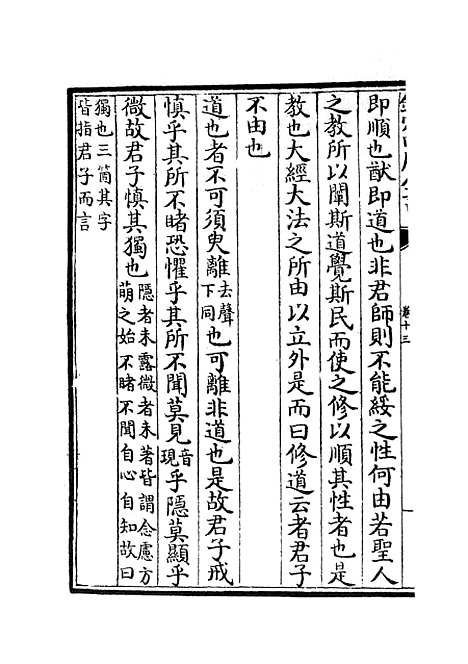 卷十三
即順也猷即道也非君師則不能綏之性何由若聖人
之教所以闡斯道覺斯民而使之修以順其性者也是
教也大經大法之所由以立外是而曰修道云者君子
不由也
道也者不可須臾離去聲下同也可離非道也是故君子戒
慎乎其所不睹恐懼乎其所不聞莫見音現乎隱莫顯乎
微故君子慎其獨也隱者未露微者未著皆謂念慮方萌之始不睹不聞自心自知故曰
獨也三箇其字皆指君子而言